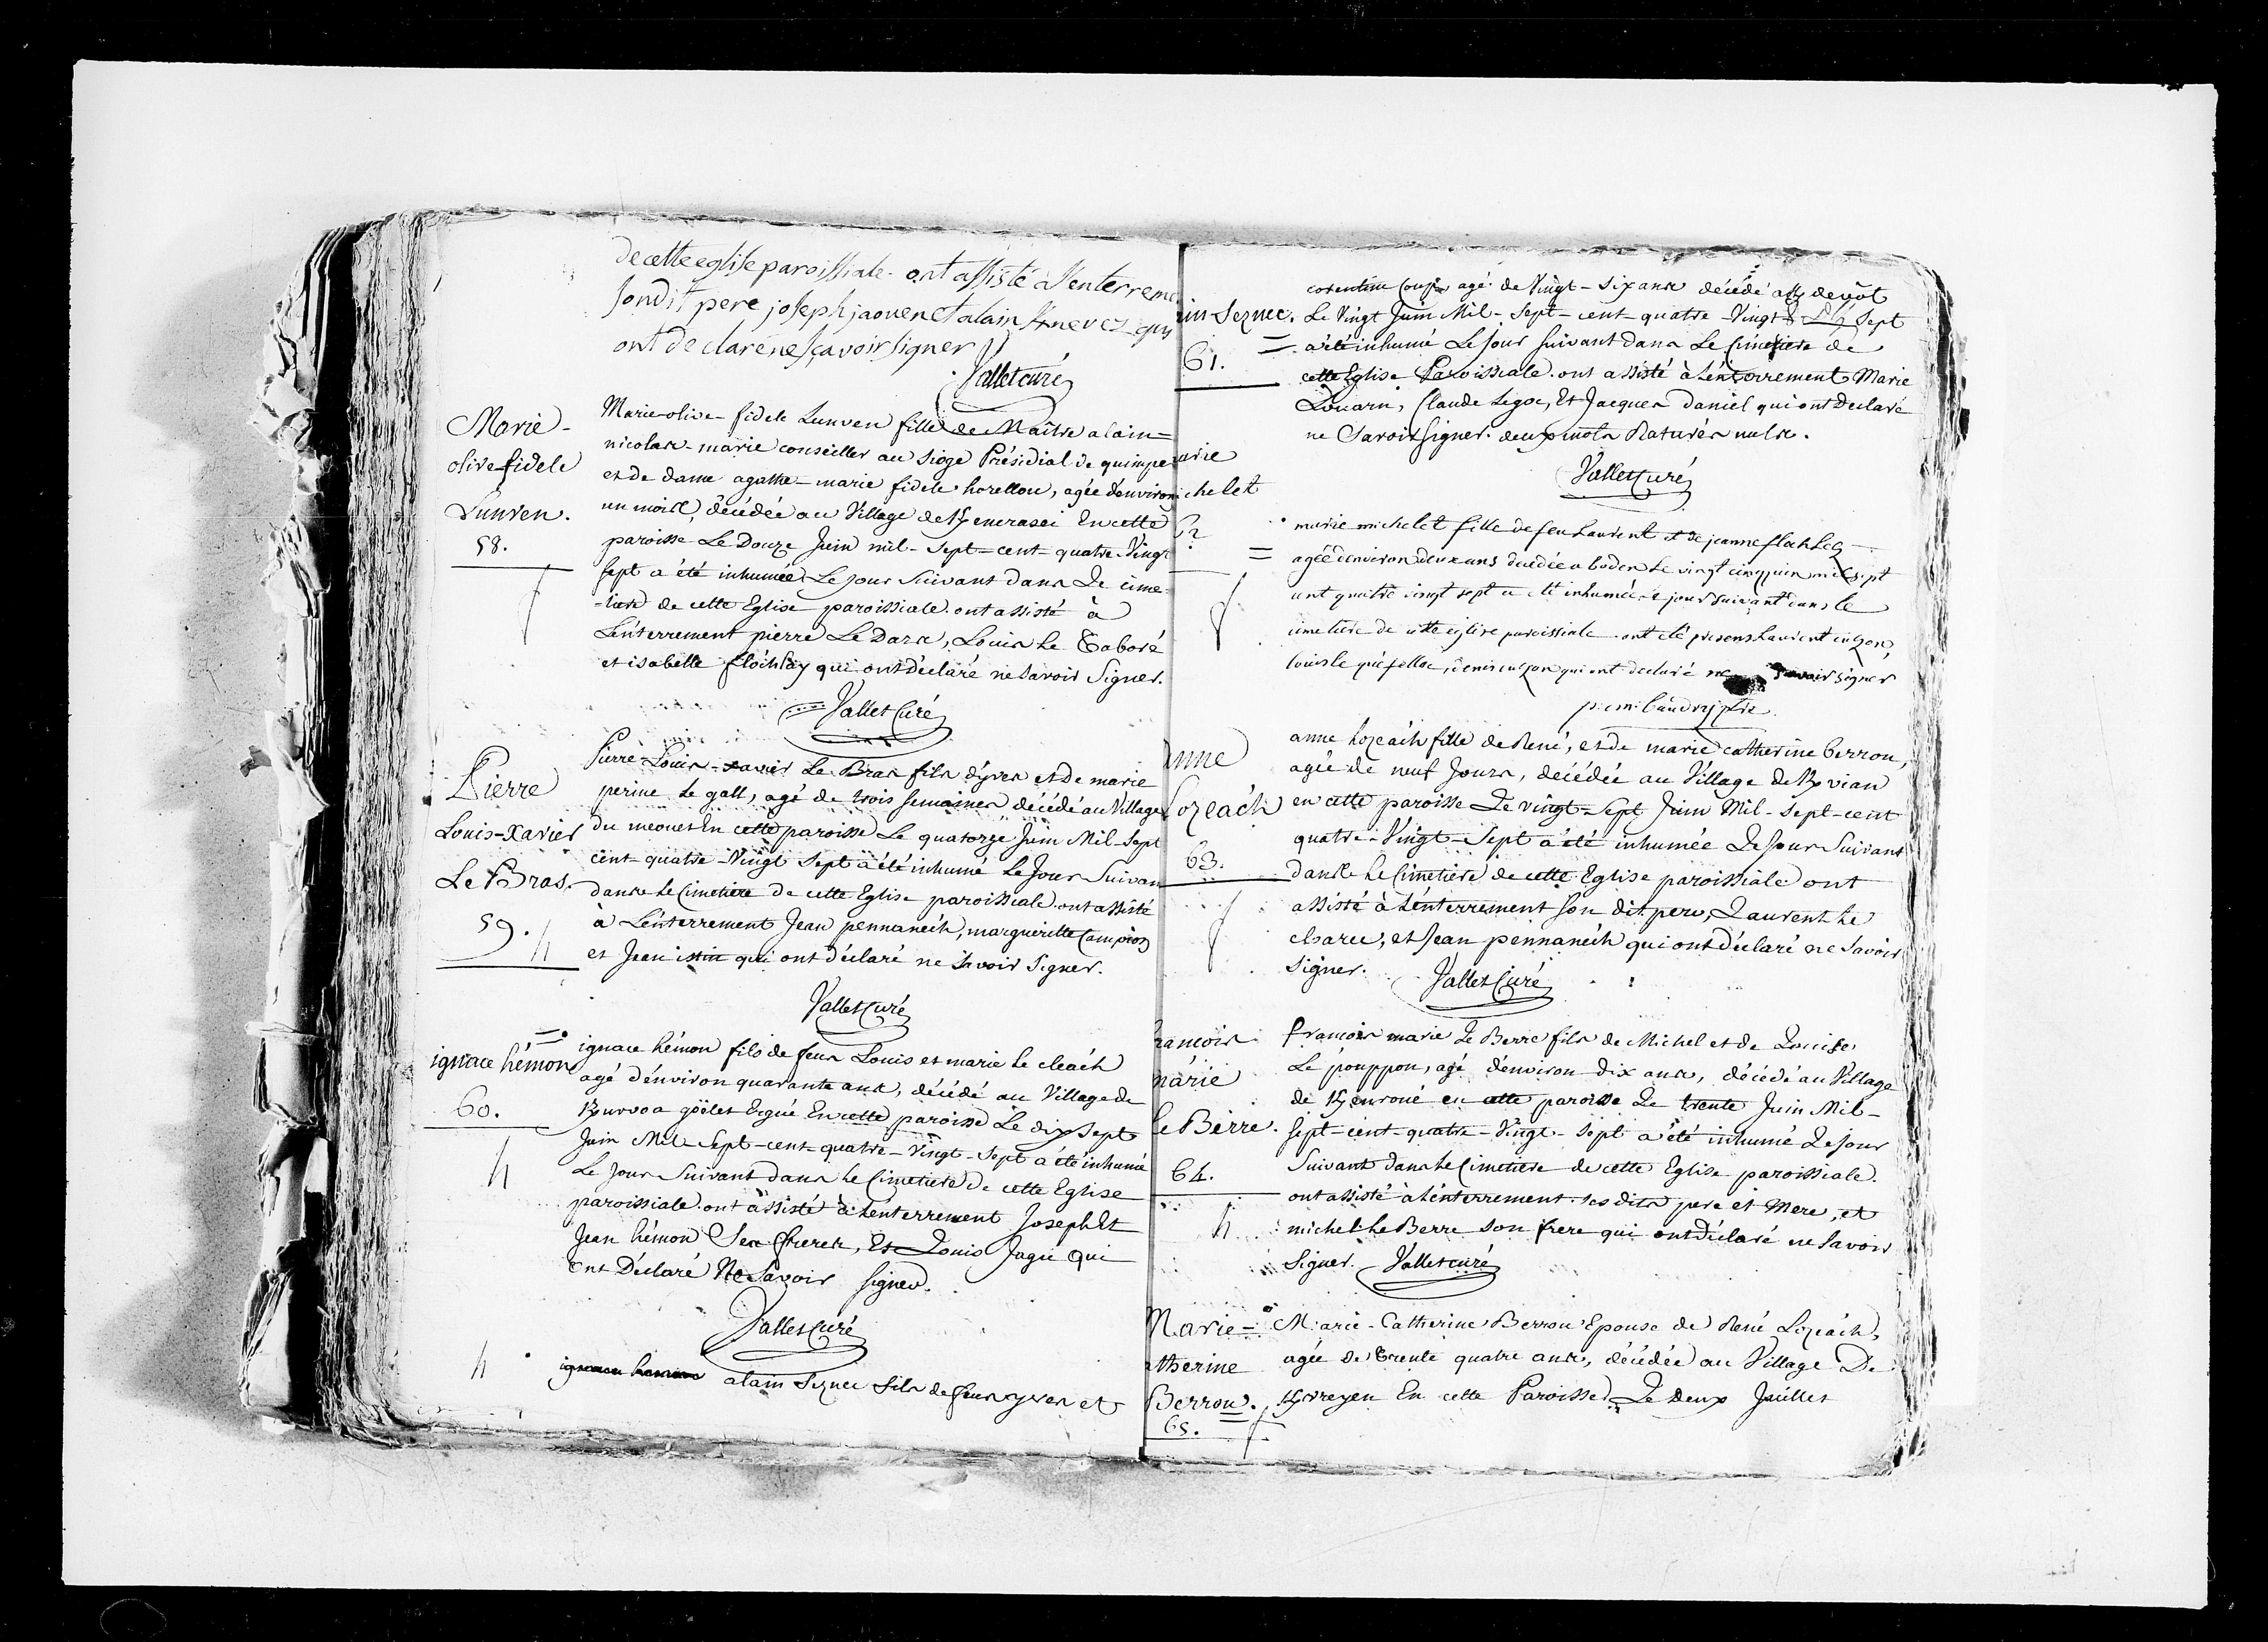 de cette eglise paroissiale. ont assisté a l'enterreme
sondit pere joseph jaouen et alain quy
ont declaré ne sçavoir signer
Vallet curé
Marie-
olive fidele
Lunven.
58.
Marie-olive-fidele Lunven fille de Maître alain=
nicolas-marie conseiller au siége Présidial de quimper
et de dame agathe-marie fidele horellou, agée d'environ
un mois, décédée au Village de En cette
paroisse Le Douze Juin mil-sept-cent-quatre-Vingt
sept a été inhumée Le jour suivant dans Le cime-
-tiere de cette Eglise paroissiale. ont assisté à
L'enterrement pierre Le Dars, Louis Le Taboré
et isabelle flóchlay qui ont déclaré ne savoir Signer.
Vallet Curé
Pierre
Louis-Xavier
Le Bras.
59.
Pierre-Louis-xavier Le Bras fils d'yves et de marie
perine Le gall, agé de trois semaines décédé au Village
du meouet En cette paroisse Le quatorze Juin Mil-Sept
cent-quatre-Vingt sept a été inhumé Le Jour Suivan
dans Le Cimetiere De cette Eglise paroissiale. ont assisté
à L'enterrement Jean pennanéch, marguerite Campion
et Jean istin qui ont déclaré ne savoir Signer.
Vallet Curé
ignace hémon
60.
ignace hémon fils de feus Louis et marie Le cleach
agé d'environ quarante ans, décédé au Village de
göëlet Ergué En cette paroisse Le dix Sept
Juin Mil-Sept-cent-quatre-Vingt-Sept a été inhumé
Le Jour Suivant dans Le Cimetiere De cette Eglise
paroissiale. ont assisté à L'enterrement Joseph Et
Jean hémon Ses freres, Et Louis Jagu Qui
Ont Déclaré Ne Savoir signer.
Vallet Curé
alain Seznec fils de feus yves et
in Seznec.
61.
corentine agé de Vingt-six ans décédé
Le Vingt Juin Mil-Sept-cent-quatre-Vingt Sept
a été inhumé Le Jour Suivant dans Le Cimetiere de
cette Eglise Paroissiale. ont assisté à L'enterrement Marie
Louarn, Claude Legoc, Et Jacques Daniel qui ont Declaré
ne Savoir signer. deux mots Raturés nuls.
Vallet Curé
arie
ichelet
62
marie michelet fille de feu Laurent et de jeanne flochlay
agée d'environ deux ans decedée a boden Le vingt cinq juin mil sept
cent quatre vingt sept a eté inhumée le jour suivant dans le
cimetiere de cette eglise paroissiale ont eté presens Laurent cuzon,
louis le denis cuzon qui ont declaré ne savoir signer
ptre
Anne
Lozeách
63.
anne Lozeách fille de René, et de marie catherine Berrou,
agée de neuf Jours, décédée au Village de
en cette paroisse Le vingt-Sept Juin Mil-Sept-cent
quatre-Vingt-Sept a été inhumée Le Jour Suivant
dans Le Cimetiere de cette Eglise paroissiale ont
assisté à L'enterrement son dit pere, Laurent Le
et Jean pennanéch qui ont Déclaré ne Savoir
Signer. Vallet Curé
rancois
márie
le Berre.
64.
francois marie Le Berre fils de Michel et de Louise
Le póuppon, agé d'environ Dix ans, décédé au Village
de en cette paroisse Le trente Juin Mil-
Sept-cent-quatre-Vingt-Sept a été inhumé Le jour
Suivant dans Le Cimetiere de cette Eglise paroissiale.
ont assisté à L'enterrement. ses dits pere et Mere, et
michel Le Berre son frere qui ont Déclaré ne Savoir
Signer. Vallet curé
Marie-
atherine
Berrou.
65.
Marie-Catherine Berrou Epouse de René Lozeách,
agée de Trente quatre ans, décédée au Village De
En cette Paroisse Le Deux Juillet